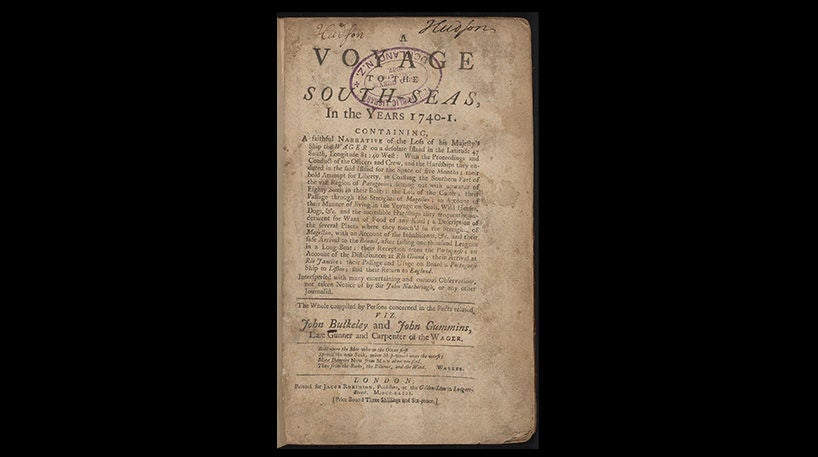 Hudson
Hudson
A
VOYAGE
TO THE
SOUTH-SEAS,
In the YEARS 1740-1.
CONTAINING,
A faithful NARRATIVE of the Loss of his Majesty's
Ship the WAGER on a desolate Island in the Latitude 47
South, Longitude 81:40 West: With the Proceedings and
Conduct of the Officers and Crew, and the Hardships they en-
dured in the said Island for the Space of five Months; their
bold Attempt for Liberty, in Coasting the Southern Part of
the vast Region of Patagonia; setting out with upwards of
Eighty Souls in their Boats; the Loss of the Cutter; their
Passage through the Streights of Magellan; an Account of
their Manner of living in the Voyage on Seals, Wild Horses,
Dogs, &c. and the incredible Hardships they frequently un-
derwent for Want of Food of any Kind; a Description of
the several Places where they touch'd in the Streights of
Magellan, with an Account of the Inhabitants, &c. and their
safe Arrival to the Brazil, after sailing one thousand Leagues
in a Long-Boat; their Reception from the Portuguese; an
Account of the Disturbances at Rio Grand; their Arrival at
Rio Janeiro; their Passage and Usage on Board a Portuguese
Ship to Lisbon; and their Return to England.
Interspersed with many entertaining and curious Observations,
not taken Notice of by Sir John Narborough, or any other
Journalist.
The Whole compiled by Persons concerned in the Facts related,
VIZ.
John Bulkeley and John Cummins,
Late Gunner and Carpenter of the WAGER.
Bold were the Men who on the Ocean first
Spread the new Sails, when Shipwreck was the worst:
More Dangers Now from Man alone we find,
Than from the Rocks, the Billows, and the Wind. WALLER.
LONDON:
Printed for JACOB ROBINSON, Publisher, at the Golden-Lion in Ludgate-
Street. M,DCC,XLIII.
[Price Bound Three Shillings and Six-pence.]